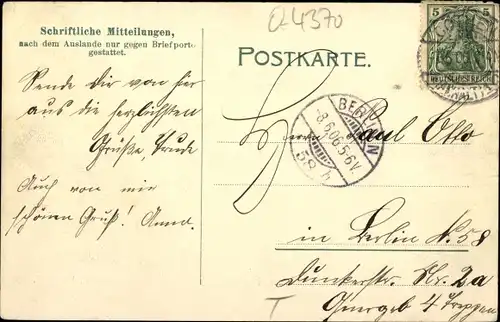 Q4370
Schriftliche Mitteilungen,
nach dem Auslande nur gegen Briefporto
gestattet.
POSTKARTE.
5 5
DEUTSCHES REICH
Sende Dir von hier
aus die herzlichsten
Grüße, Trude
Auch von mir
schönen Gruß! Anna.
BERLIN
8.6.06.5-6V.
58.
Herrn Paul Otto
in Berlin N. 58
Dunkerstr. Nr. 2a
Quergeb 4 Treppen
T